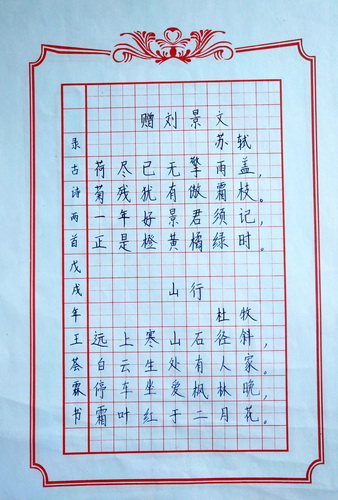 赠刘景文
苏轼
荷尽已无擎雨盖，
菊残犹有傲霜枝。
一年好景君须记，
正是橙黄橘绿时。
山行
杜牧
远上寒山石径斜，
白云生处有人家。
停车坐爱枫林晚，
霜叶红于二月花。
录古诗两首戊戌年王荟霖书